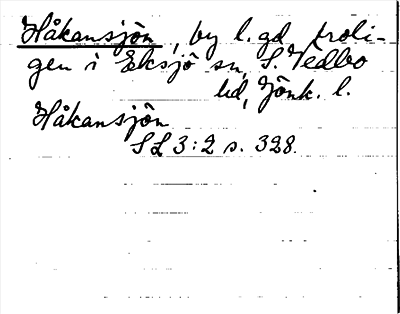 Håkansjön, by l. gd troli-
gen i Eksjö sn, S. Vedbo
hd, Jönk. l.
Håkansjön
SL 3:2 s. 328.